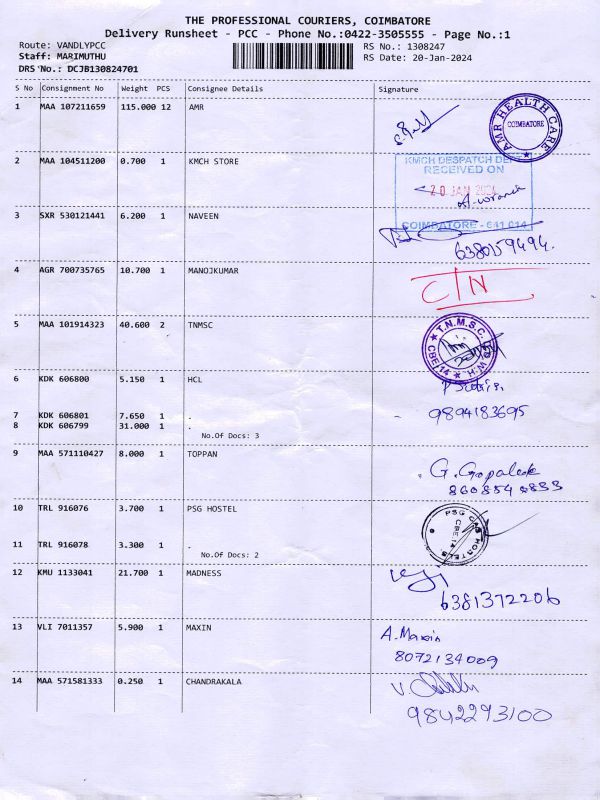 THE PROFESSIONAL COURIERS, COIMBATORE
Delivery Runsheet - PCC - Phone No.:0422-3505555 - Page No.:1
Route: VANDLYPCC RS No.: 1308247
Staff: MARIMUTHU RS Date: 20-Jan-2024
DRS No.: DCJB130824701
S No Consignment No Weight PCS Consignee Details Signature
1 MAA 107211659 115.000 12 AMR
AMR HEALTH CARE
COIMBATORE
2 MAA 104511200 0.700 1 KMCH STORE
KMCH DESPATCH DEPT
RECEIVED ON
20 JAN 2024
COIMBATORE - 641 014
3 SXR 530121441 6.200 1 NAVEEN
6380159494.
4 AGR 700735765 10.700 1 MANOJKUMAR
C/N
5 MAA 101914323 40.600 2 TNMSC
T.N.M.S.C.
CBE 14
6 KDK 606800 5.150 1 HCL
7 KDK 606801 7.650 1 .
9894183695
8 KDK 606799 31.000 1 .
No.Of Docs: 3
9 MAA 571110427 8.000 1 TOPPAN
G.
10 TRL 916076 3.700 1 PSG HOSTEL
PSG CAS HOSTELS
11 TRL 916078 3.300 1 .
No.Of Docs: 2
12 KMU 1133041 21.700 1 MADNESS
6381372206
13 VLI 7011357 5.900 1 MAXIN
A. Maxin
8072134009
14 MAA 571581333 0.250 1 CHANDRAKALA
9842293100